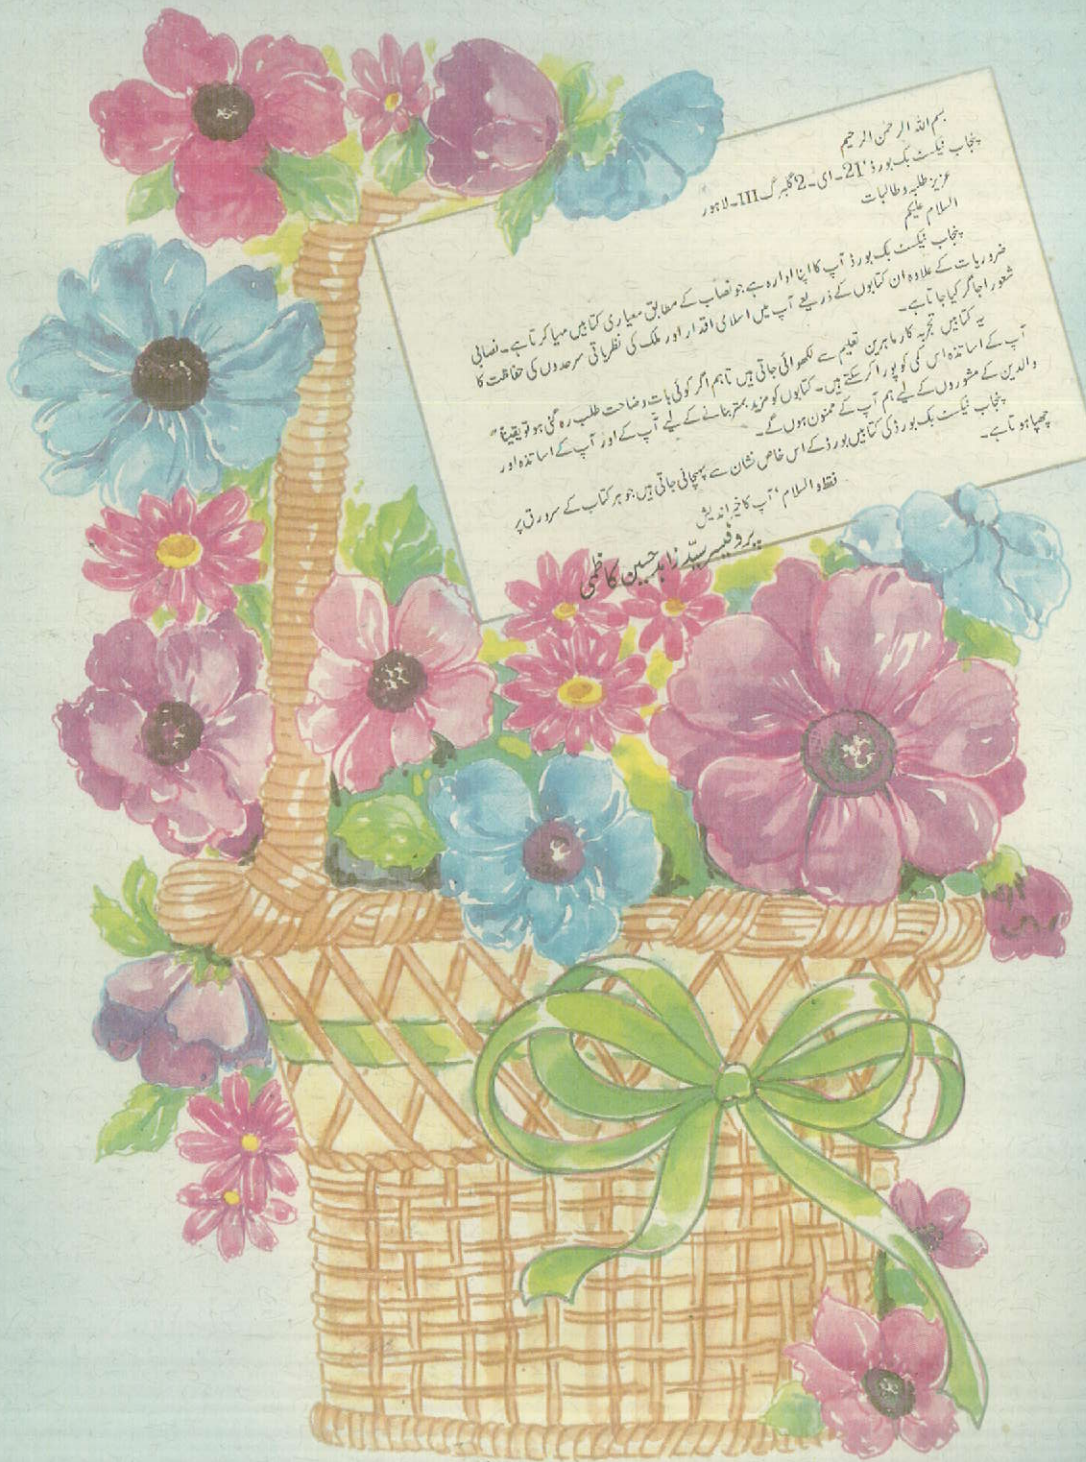 بسم اللہ الرحمٰن الرحیم
پنجاب ٹیکسٹ بک بورڈ، 21۔ای۔2 گلبرگ III۔لاہور
عزیز طلبہ و طالبات
السلام علیکم
پنجاب ٹیکسٹ بک بورڈ آپ کا اپنا ادارہ ہے جو نصاب کے مطابق معیاری کتابیں مہیا کرتا ہے۔ نصابی
ضروریات کے علاوہ ان کتابوں کے ذریعے آپ میں اسلامی اقدار اور ملک کی نظریاتی سرحدوں کی حفاظت کا
شعور اجاگر کیا جاتا ہے۔
یہ کتابیں تجربہ کار ماہرین تعلیم سے لکھوائی جاتی ہیں تاہم اگر کوئی بات وضاحت طلب رہ گئی ہو تو یقیناً
آپ کے اساتذہ اس کمی کو پورا کر سکتے ہیں۔ کتابوں کو مزید بہتر بنانے کے لیے آپ کے اور آپ کے اساتذہ اور
والدین کے مشوروں کے لیے ہم آپ کے ممنون ہوں گے۔
پنجاب ٹیکسٹ بک بورڈ کی کتابیں بورڈ کے اس خاص نشان سے پہچانی جاتی ہیں جو ہر کتاب کے سرورق پر
چھپا ہوتا ہے۔
فقط والسلام، آپ کا خیر اندیش
پروفیسر سیّد زاہد حسین کاظمی